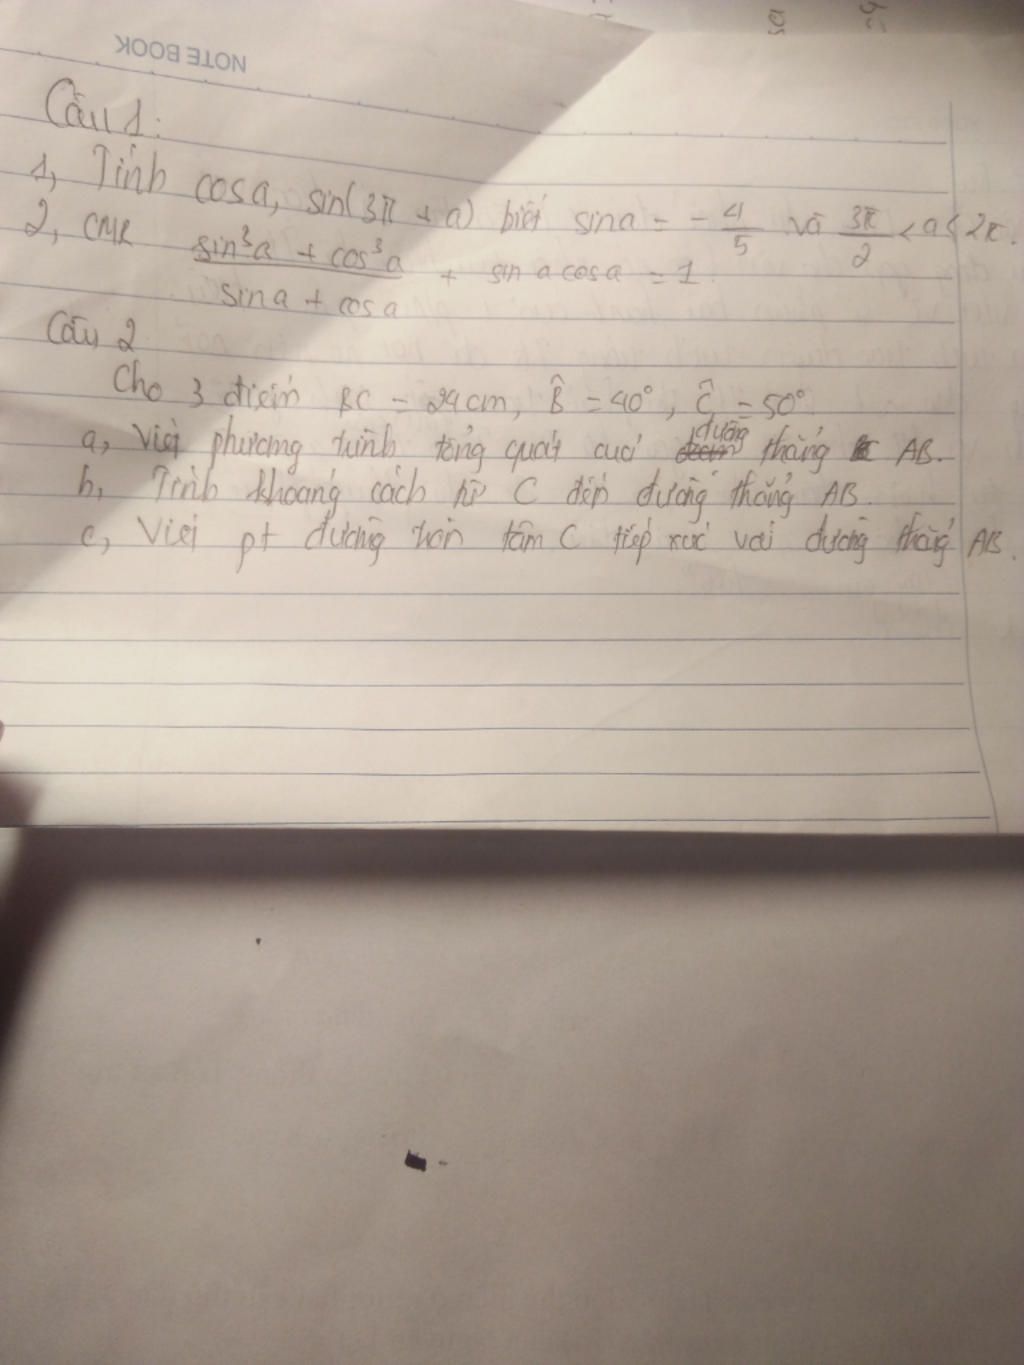 NOTEBOOK
Câu 1:
1, Tính cosa, sin(3π + a) biết sina = - 4/5 và 3π/2 < a < 2π.
2, CMR (sin³a + cos³a)/(sina + cosa) + sin a cosa = 1.
Câu 2
Cho 3 điểm BC = 24cm, B̂ = 40°, Ĉ = 50°
a, Viết phương trình tổng quát cuả đường thẳng AB.
b, Tính khoảng cách từ C đến đường thẳng AB.
c, Viết pt đường tròn tâm C tiếp xúc với đường thẳng AB.